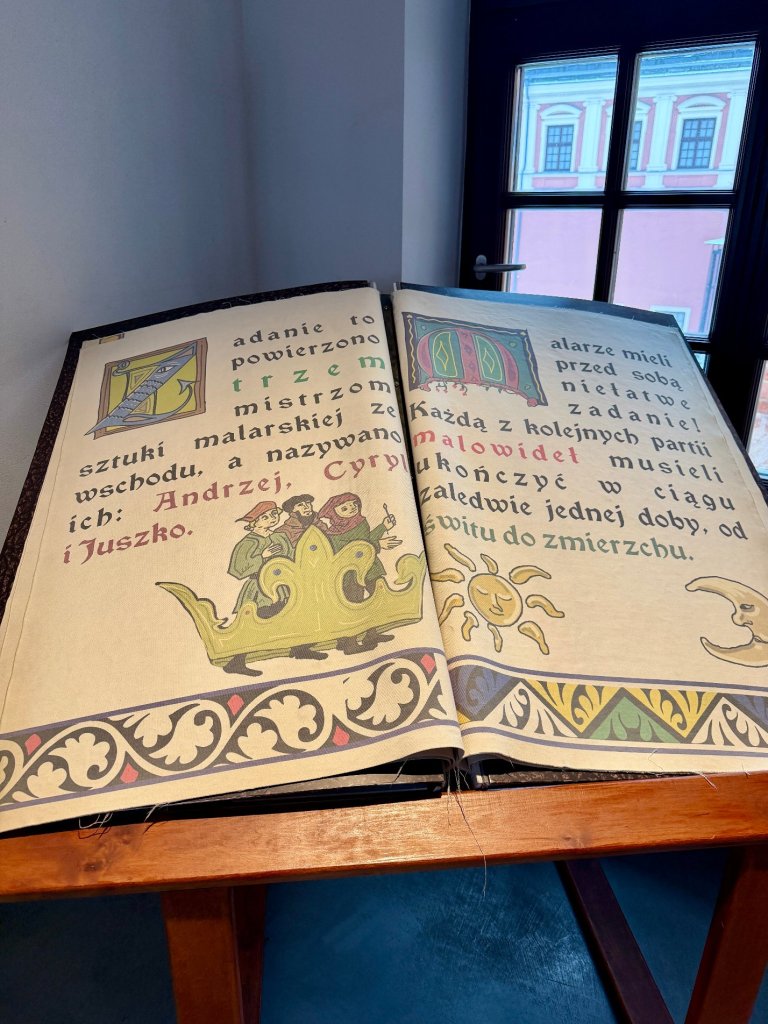 Zadanie to
powierzono
trzem
mistrzom
sztuki malarskiej ze
wschodu, a nazywano
ich: Andrzej, Cyryl
i Juszko.
Malarze mieli
przed sobą
niełatwe
zadanie!
Każdą z kolejnych partii
malowideł musieli
ukończyć w ciągu
zaledwie jednej doby, od
świtu do zmierzchu.